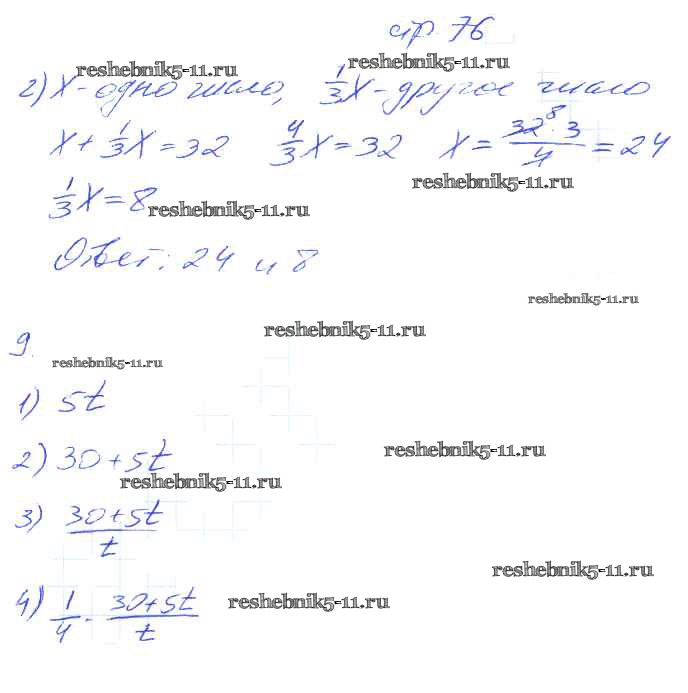 стр. 76
reshebnik5-11.ru reshebnik5-11.ru
2) X - одно число, 1/3 X - другое число
X + 1/3 X = 32 4/3 X = 32 X = 32⁸ · 3 / 4 = 24
reshebnik5-11.ru
1/3 X = 8 reshebnik5-11.ru
Ответ: 24 и 8
reshebnik5-11.ru
reshebnik5-11.ru
9.
reshebnik5-11.ru
1) 5t
2) 30 + 5t
reshebnik5-11.ru
reshebnik5-11.ru
3) 30+5t / t
reshebnik5-11.ru
4) 1/4 · 30+5t / t reshebnik5-11.ru